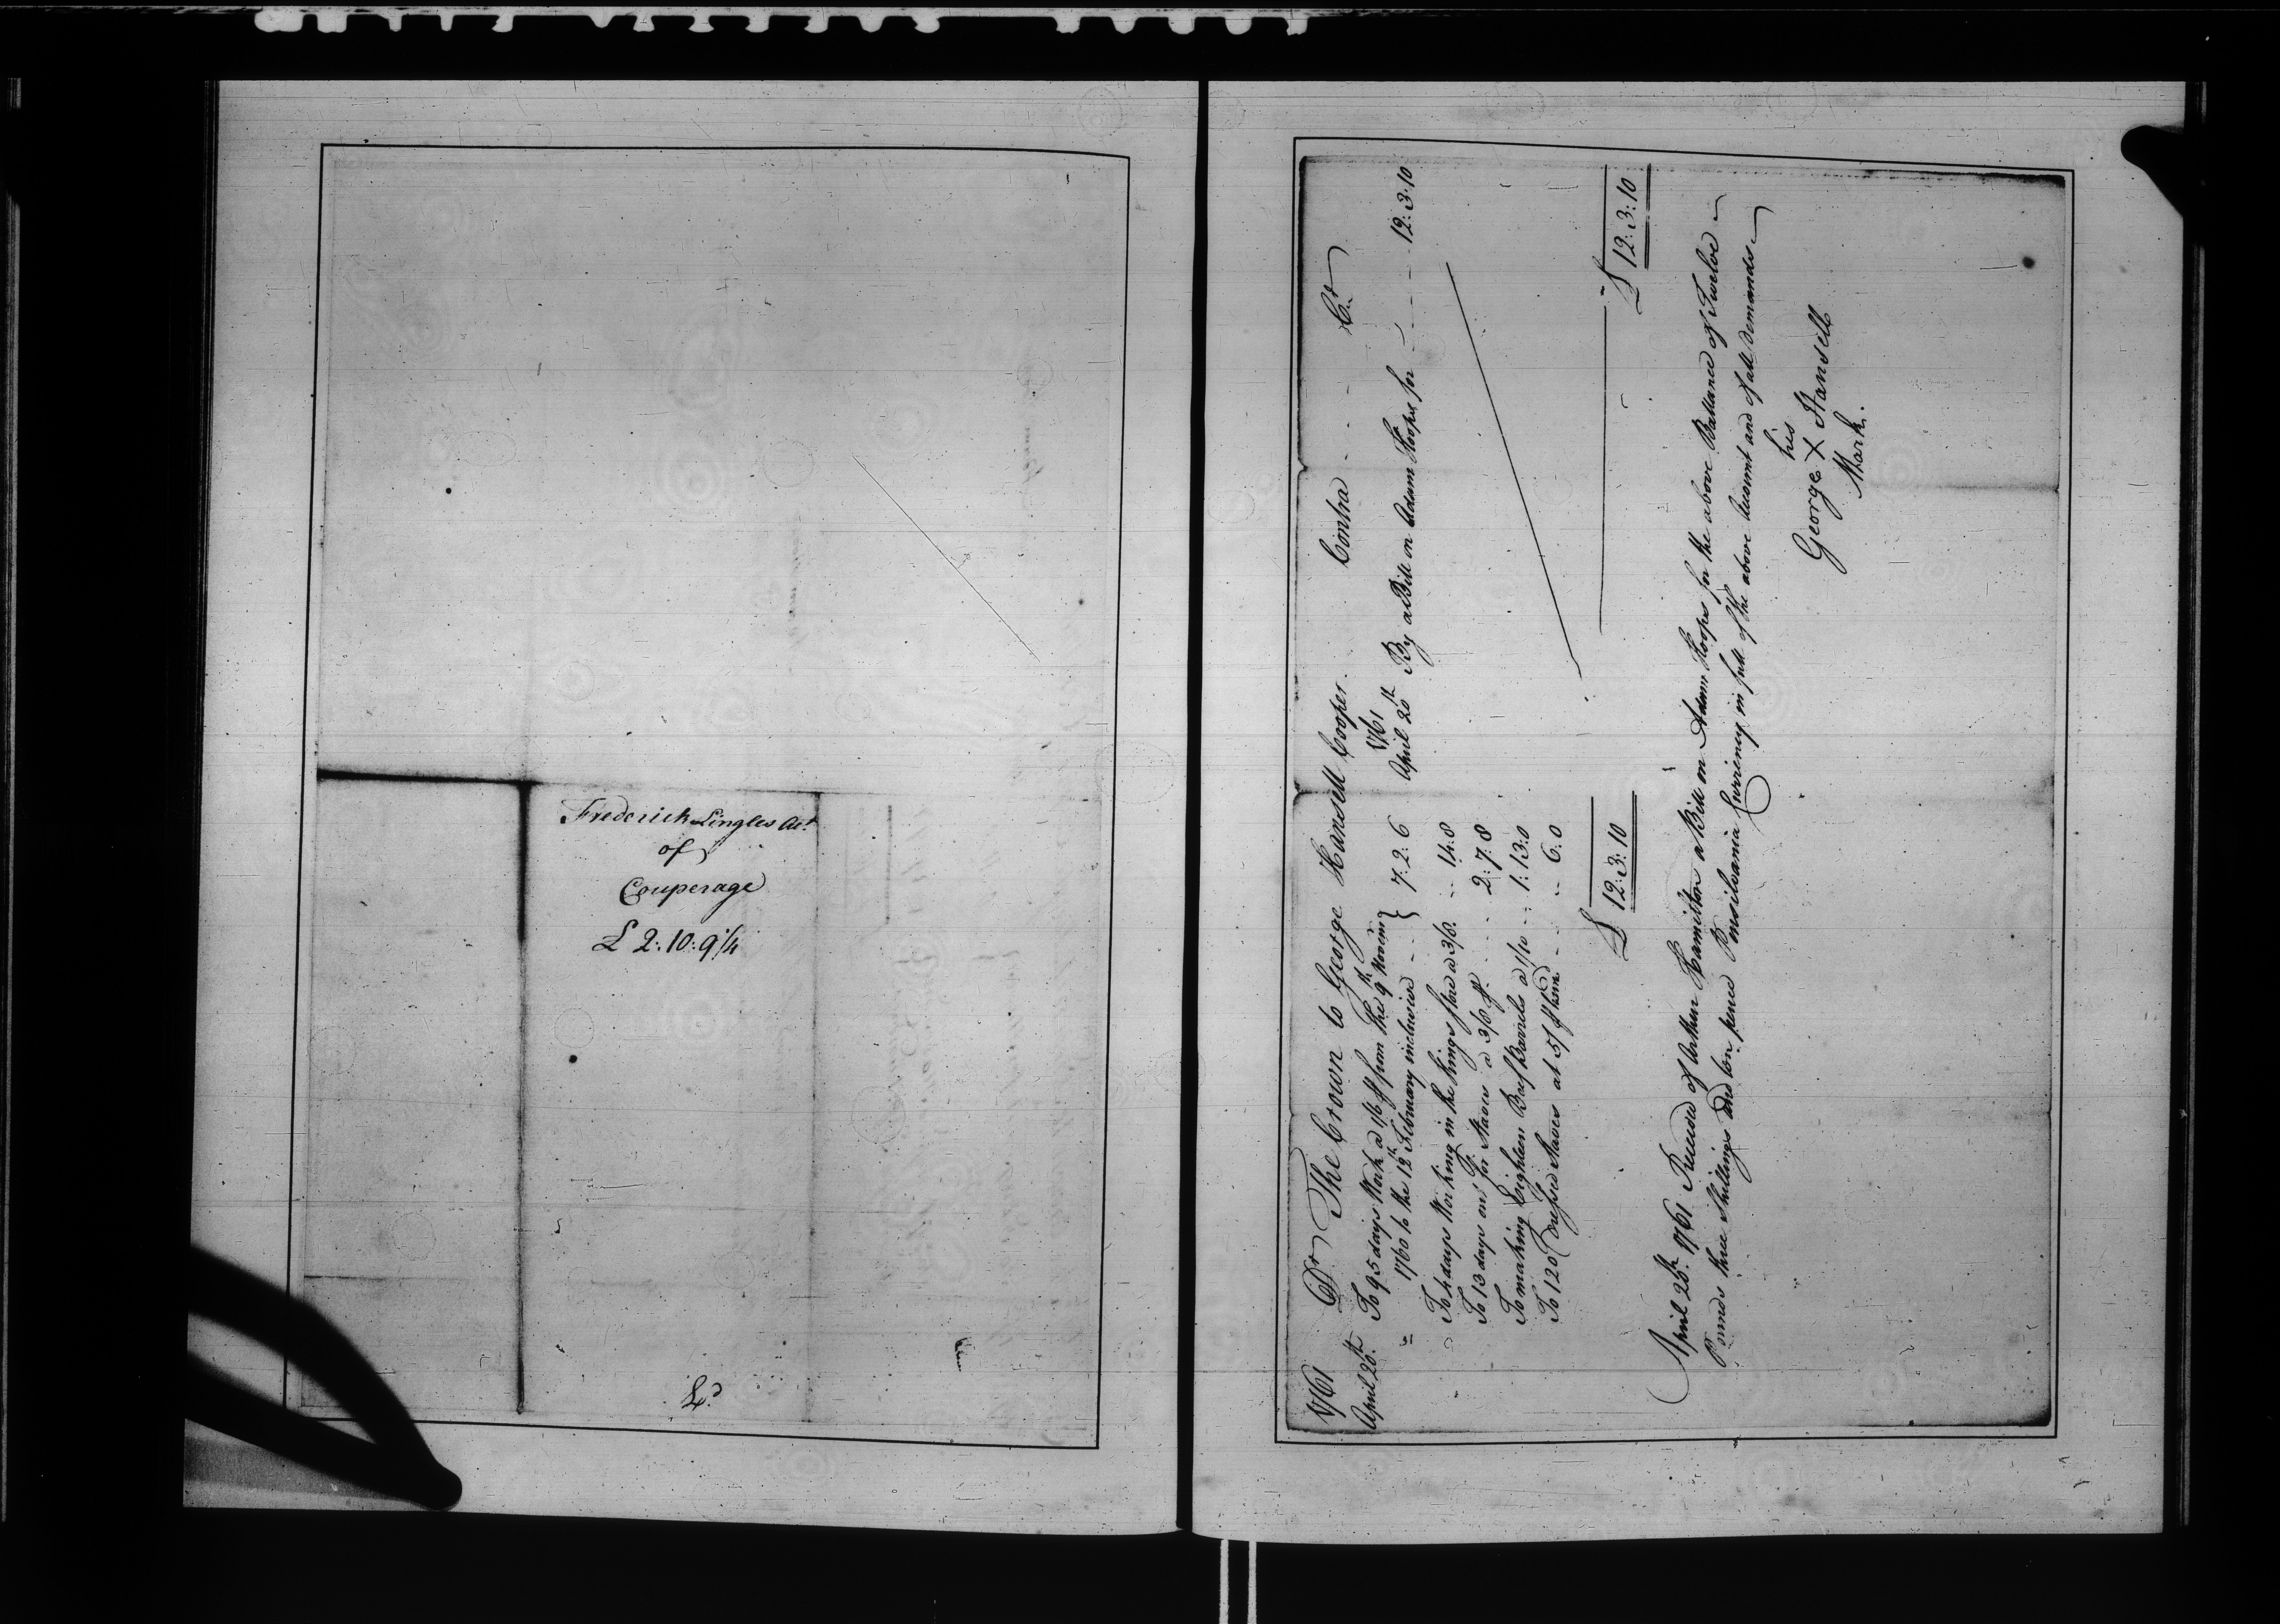 Frederick Lingles Act
of
Couperage
£ 2:10:9¼
1761 Dr The Crown to George Hansell Cooper. Contra Cr
April 20th To 95 days Work a 1/6 P from the 9th Novem
1760 to the 12th February inclusive 7:2:6
To 4 days Working in the Kings Store a 3/8. 14:8
To 13 days on Do for Staves a 3/8 P. 2:7:8
To making Eighteen Beef Barrels a 1/10 1:13:0
To 120 Dressed Staves at 5/ P hund 6:0
£ 12:3:10
1761
April 20th By a Bill on Adam Hoops for 12:3:10
£ 12:3:10
April 20th 1761 Received of Arthur Hamilton a Bill on Adam Hoops for the above Ballance of Twelve
Pounds three Shillings and ten pence Pensilvania Currency in full of the above Account and of all Demands
his
George X Hansell
Mark.